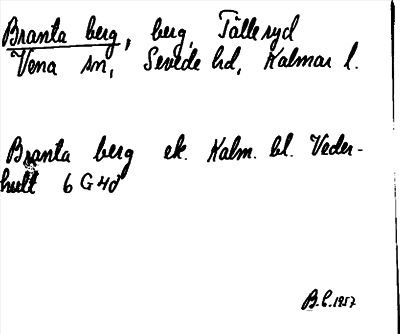 Branta berg, berg, Tälleryd
Vena sn, Sevede hd, Kalmar l.
Branta berg ek. Kalm. bl. Veder-
hult 6 G 4d
B.L. 1957